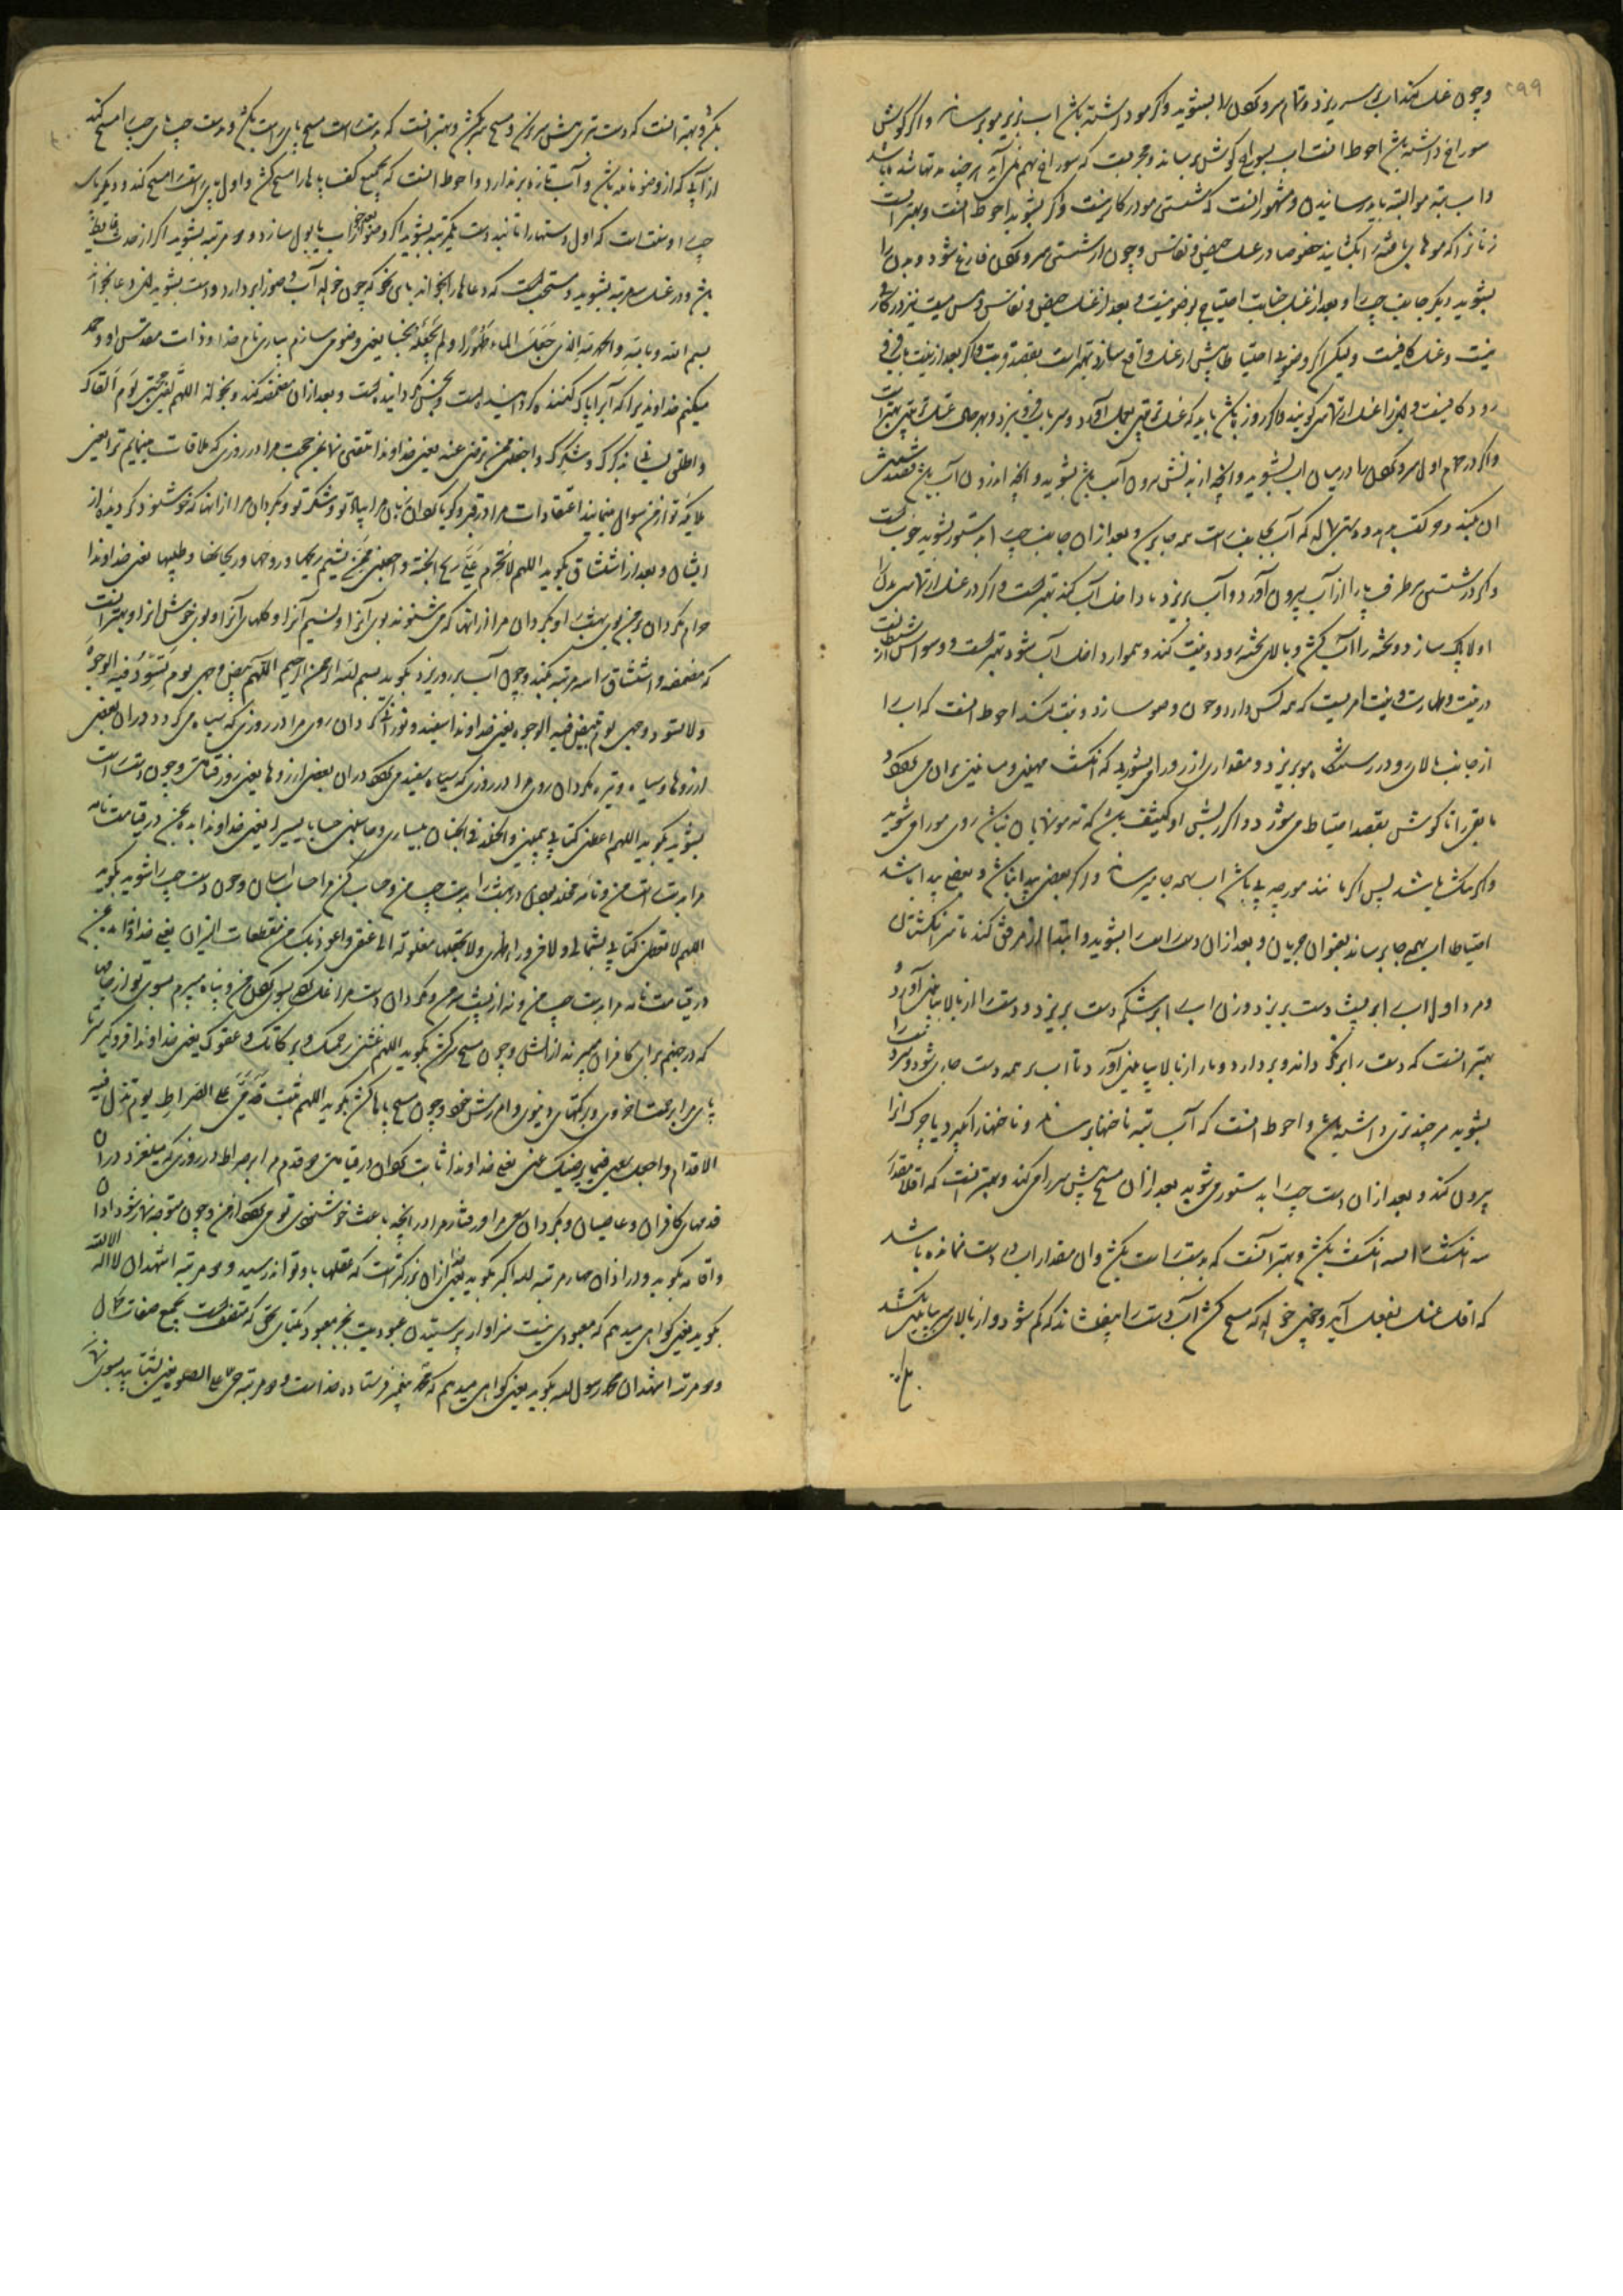 ۲۹۹
وچون غسل کند اب بر سر ریزد و تمام سر و کردن را بشوید و اکر مو داشته باشد اب بزیر مو برساند و اکر کوشش
سوراخ داشته باشد احوط انست اب بسوراخ کوش برساند و مجربست که سوراخ بهم می آید هر چند مدتها شده باشد
و اب بته مو البته باید رسانیدن و مشهور انست که شستن مو در کار نیست و اکر بشوید احوط است و بهتر است
زنانرا که موهای بافته را بکشایند خصوصا در غسل حیض و نفاس و چون از شستن سر و کردن فارغ شود و بدن را
بشوید دیکر جانب چپ را و بعد از غسل جنابت احتیاج بوضو نیست و بعد از غسل حیض و نفاس و مس میت نیز در کار
نیست و غسل کافیست و لیکن اکر وضوی احتیاطا پیش از غسل واقع سازد بهتر است بقصد قربت و اکر بعد از نیت باب فرو
رود کافیست و این را غسل ارتماسی کویند و اکر روزه باشد باید که غسل ترتیبی بعمل آورد و سر باب فرو نبرد و بهر حال غسل ترتیبی بهتر است
و اکر در حمام اول سر و کردن را در میان اب بشوید و انچه از بدنش بیرون آب باشد بشوید و انچه اندرون آب باشد قصد شستن
ان بکند و حرکت بدهد و دستی بمالد که آب بجانب راست همه جا برسد و بعد از ان جانب چپ را بدستور بشوید خوبست
و اکر در شستن هر طرف پا را از آب بیرون آورد و آب بریزد یا داخل آب کند بهتر است و اکر در غسل ارتماسی بدن را
اولا پاک سازد و تخته را آب کشد و بالای تخته رود و نیت کند و هموار داخل آب شود بهتر است و وسواس شیطانیست
در نیت و طهارت و نیت امریست که همه کس دارد و چون وضو سازد و نیت کند احوط انست که اب را
از جانب بالای رو در رستنکاه مو بریزد و مقداری از رو را می شوید که انکشت مهین و میانین بران می کردد
تا بقرب نا کوشش بقصد احتیاط می شوید و اکر ریش او کثیف باشد که ته مو نمایان نباشد روی مو را می شوید
و اکر تنک باشد پس اکر مانند مورچه پی باشد اب بهمه جا میرساند و اکر بعضی پیدا نباشد و بعضی پیدا باشد
احتیاطا اب بهمه جا برساند بعنوان جریان و بعد از ان دست راست را بشوید و ابتدا از مرفق کند تا سر انکشتان
و مرد اول اب را بر پشت دست بریزد و زن اب را بر شکم دست بریزد و دست را از بالا بپائین آورد و
بهتر انست که دست را بر نکرداند و بردارد و بار از بالا بپائین آورد تا اب بر همه دست جاری شود و سر دست را
بشوید هر چند تری داشته باشد و احوط انست که آب بته ناخنها برساند و ناخنها را بکیرد یا چرک انرا
بیرون کند و بعد از ان دست چپ را بدستور می شوید بعد از ان مسح پیش سر را می کند و بهتر انست که اقلا مقدار
سه انکشت را بسه انکشت بکشد و بهتر آنست که بدست راست بکشد و ان مقدار اب در دست نمانده باشد
که اقل غسل بفعل آید و چون خواهد که مسح کشد آب دست را بیفشاند که کم شود و از بالای سر بپائین بکشد
بکشد و بهتر انست که دست تری پیش سر برساند و مسح سر بکشد و بهتر انست که بدست راست مسح پای راست بکشد و بدست چپ پای چپ را مسح کند
از آبی که از وضو مانده باشد و آب تازه بر ندارد و احوط انست که بجمیع کف پاها را مسح کشد و اول پای راست را مسح کند و دیکر پای
چپ را و سنت است که اول دستها را تا بند دست یکمرتبه بشوید اکر وضو بعد از خواب یا بول سازد و دو مرتبه بشوید اکر از حدث غایط
باشد و در غسل سه مرتبه بشوید و مستحب است که دعاها را بخواند باین نحو که چون خواهد آب وضو را بردارد و دست بشوید این دعا بخواند
بسم الله و بالله و الحمد لله الذی جعل الماء طهورا و لم یجعله نجسا یعنی وضو می سازم بیاری نام خدا و ذات مقدس او و حمد
میکنم خداوندیرا که آبرا پاک کننده کردانیده است و نجس نکردانیده است و بعد از ان مضمضه کند و بخواند اللهم لقنی حجتی یوم القاک
و اطلق لسانی بذکرک و شکرک و اجعلنی ممن ترضی عنه یعنی خداوندا تلقین نما بمن حجت مرا در روزی که ملاقات مینمایم ترا یعنی
ملائکه تو از من سوال مینمایند اعتقادات مرا در قبر و کویا کردان زبان مرا بیاد تو و شکر تو و بکردان مرا از انها که خوشنود کردیده از
ایشان و بعد از استنشاق بکوید اللهم لا تحرم علی ریح الجنة و اجعلنی ممن یشم ریحها و روحها و ریحانها و طیبها یعنی خداوندا
حرام مکردان بر من بوی بهشت را و بکردان مرا از انها که می شنوند بوی آنرا و نسیم آنرا و کلهای آنرا و بوی خوش انرا و بهتر انست
که مضمضه و استنشاق را سه مرتبه بکند و چون آب بر رو ریزد بکوید بسم الله الرحمن الرحیم اللهم بیض وجهی یوم تسود فیه الوجوه
و لا تسود وجهی یوم تبیض فیه الوجوه یعنی خداوندا سفید و نورانی کردان روی مرا در روزی که سیاه می کردد دران بعضی
از روها و سیاه و تیره مکردان روی مرا در روزی که سفید می کردد دران بعضی از روها یعنی روز قیامت و چون دست راست
بشوید بکوید اللهم اعطنی کتابی بیمینی و الخلد فی الجنان بیساری و حاسبنی حسابا یسیرا یعنی خداوندا بده بمن در قیامت نامه
مرا بدست راست من و نامه مخلد بودن در بهشت را بدست چپ من و حساب کن مرا حساب اسان و چون دست چپ را شوید بکوید
اللهم لا تعطنی کتابی بشمالی و لا من وراء ظهری و لا تجعلها مغلولة الی عنقی و اعوذ بک من مقطعات النیران یعنی خداوندا مده بمن
در قیامت نامه مرا بدست چپ من و نه از پشت سر من و مکردان دست مرا غل کرده بسوی کردن من و پناه میبرم بسوی تو از جامها
که در جهنم برای کافران میبرند از اتش و چون مسح سر کشد بکوید اللهم غشنی رحمتک و برکاتک و عفوک یعنی خداوندا فرو کیر سر تا
پای مرا برحمتهای اخروی و برکتهای دنیوی و امرزش خود و چون مسح پاها کشد بکوید اللهم ثبت قدمی علی الصراط یوم تزل فیه
الاقدام و اجعل سعیی فیما یرضیک عنی یعنی خداوندا ثابت کردان در قیامت دو قدم مرا بر صراط در روزی که میلغزد دران
قدمهای کافران و عاصیان و بکردان سعی مرا و رفتار مرا در انچه باعث خوشنودی تو می کردد از من و چون متوجه نماز شود اذان
و اقامه بکوید و در اذان چهار مرتبه الله اکبر بکوید یعنی خدا از ان بزرکتر است که عقلها باو تواند رسید و دو مرتبه اشهد ان لا اله الا الله
بکوید یعنی کواهی میدهم که معبودی نیست سزاوار پرستیدن و عبودیت بجز معبود یکتای بحق که متصف است بجمیع صفات کمال
و دو مرتبه اشهد ان محمدا رسول الله بکوید یعنی کواهی میدهم که محمد پیغمبر فرستاده خداست و دو مرتبه حی علی الصلوة یعنی بشتابید بسوی نماز